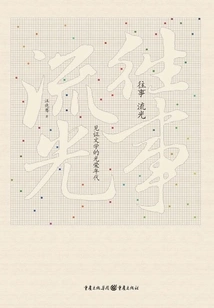 往事
流光
往事 流光
见证文学的光荣年代
汪兆骞 著
重庆出版集团 重庆出版社